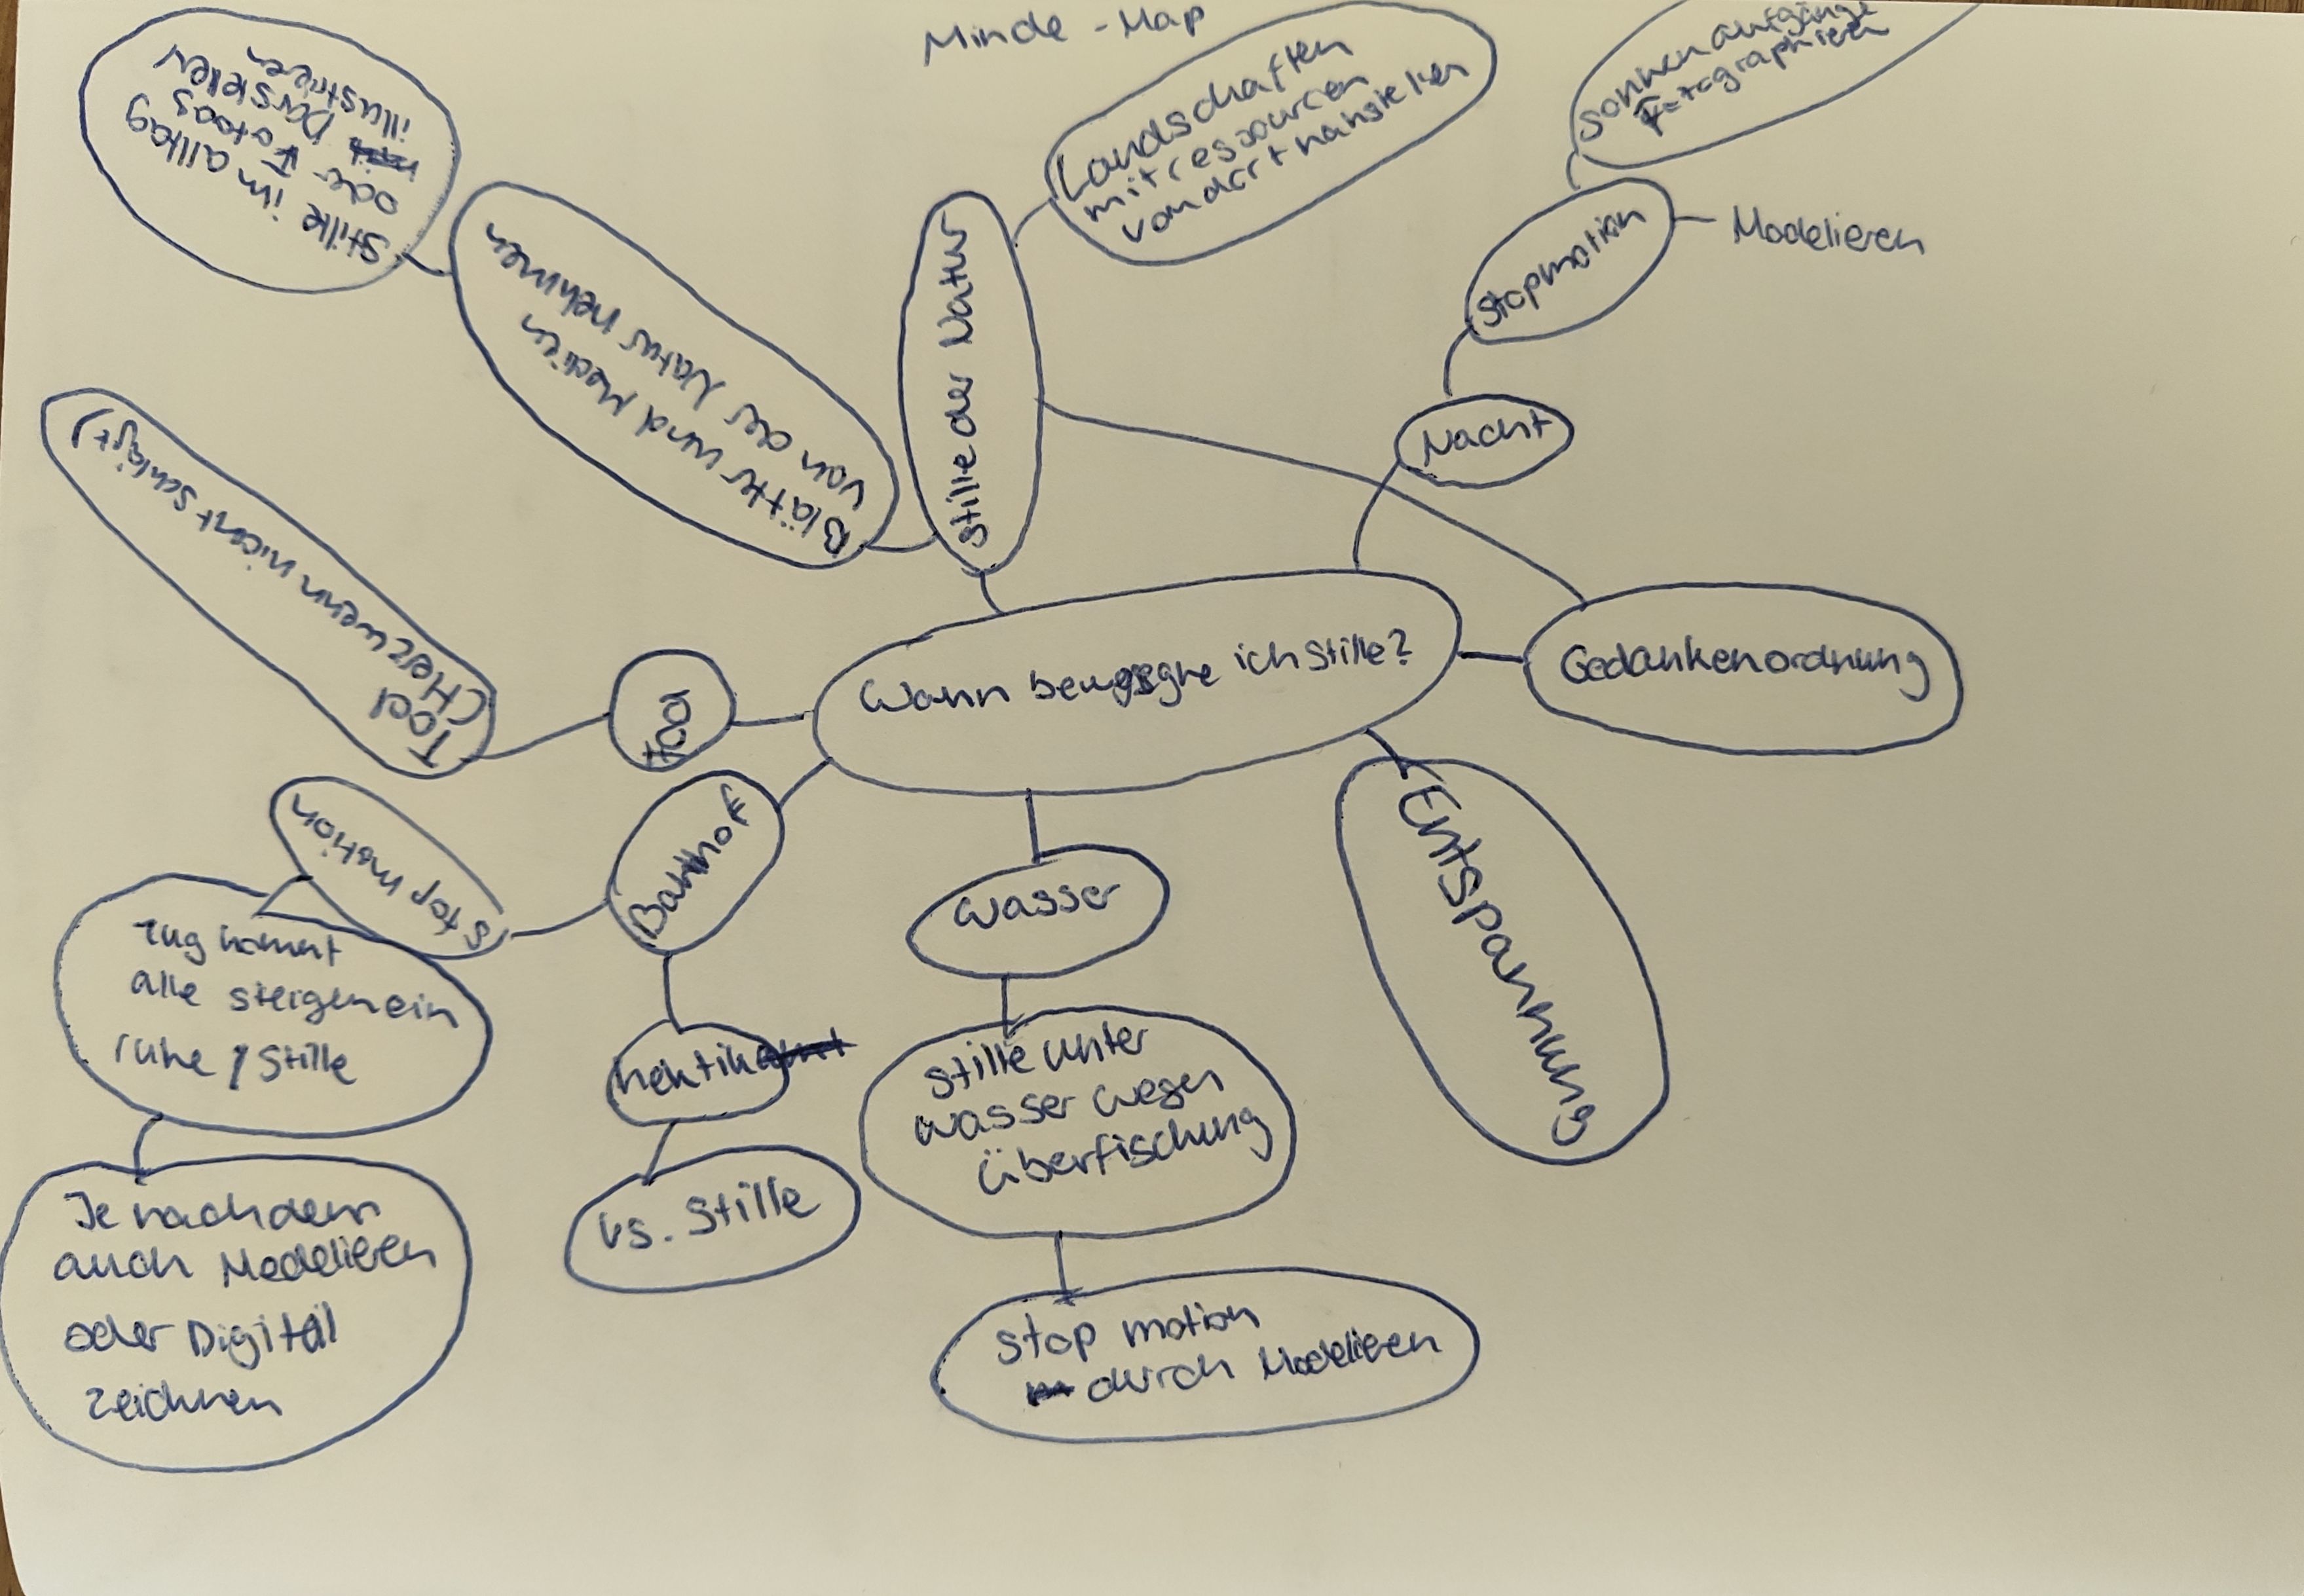 Minde-Map
Stille im alltag
oder Fotos
Darstellen
illustrieren
Blätter und Medien
von der Natur nehmen
Stille der Natur
Landschaften
mit ressourcen
von dort nahstellen
Sonnenaufgänge
Fotographieren
Stopmotion
Modelieren
Nacht
Wann begegne ich Stille?
Gedankenordnung
Entspannung
Tod
(Herz wenn nicht schlägt)
Bahnhof
Stop motion
Zug kommt
alle steigen ein
ruhe / Stille
Je nachdem
auch Modelieren
oder Digital
zeichnen
hektik
vs. Stille
Wasser
Stille unter
wasser wegen
überfischung
Stop motion
durch Modelieren